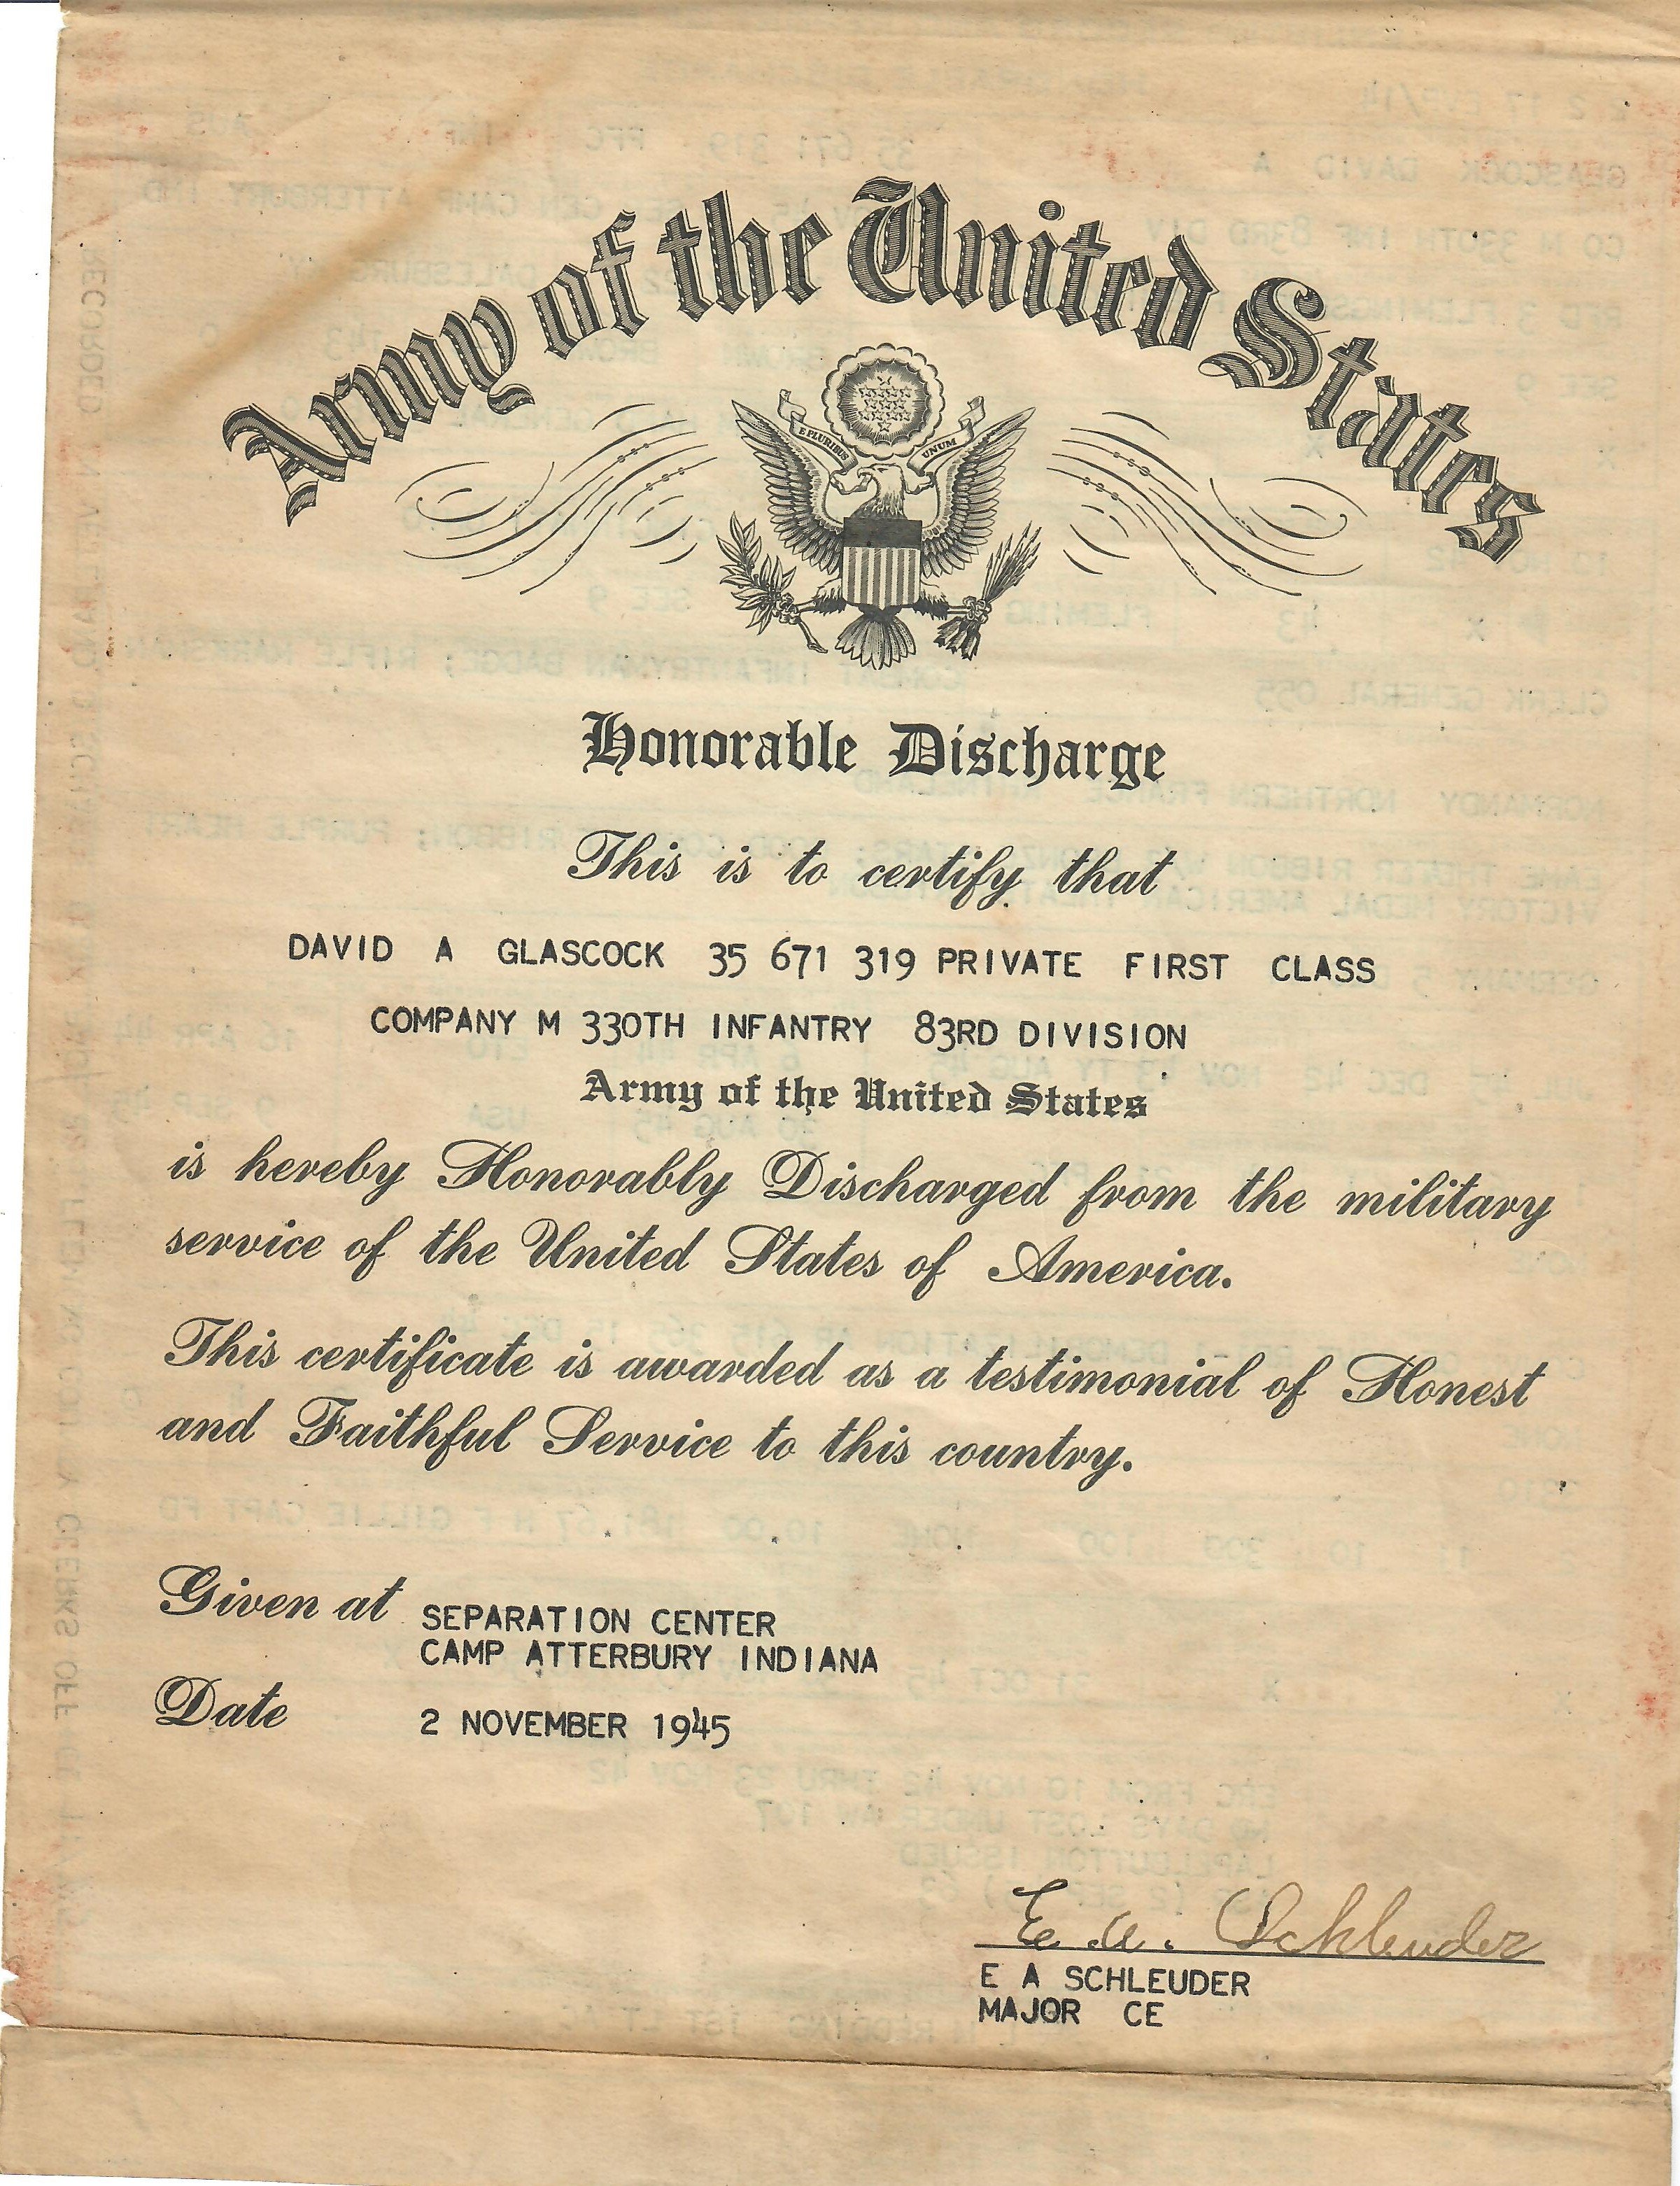 Army of the United States
E PLURIBUS UNUM
Honorable Discharge
This is to certify that
DAVID A GLASCOCK 35 671 319 PRIVATE FIRST CLASS
COMPANY M 330TH INFANTRY 83RD DIVISION
Army of the United States
is hereby Honorably Discharged from the military
service of the United States of America.
This certificate is awarded as a testimonial of Honest
and Faithful Service to this country.
Given at SEPARATION CENTER
CAMP ATTERBURY INDIANA
Date 2 NOVEMBER 1945
E. A. Schleuder
E A SCHLEUDER
MAJOR CE